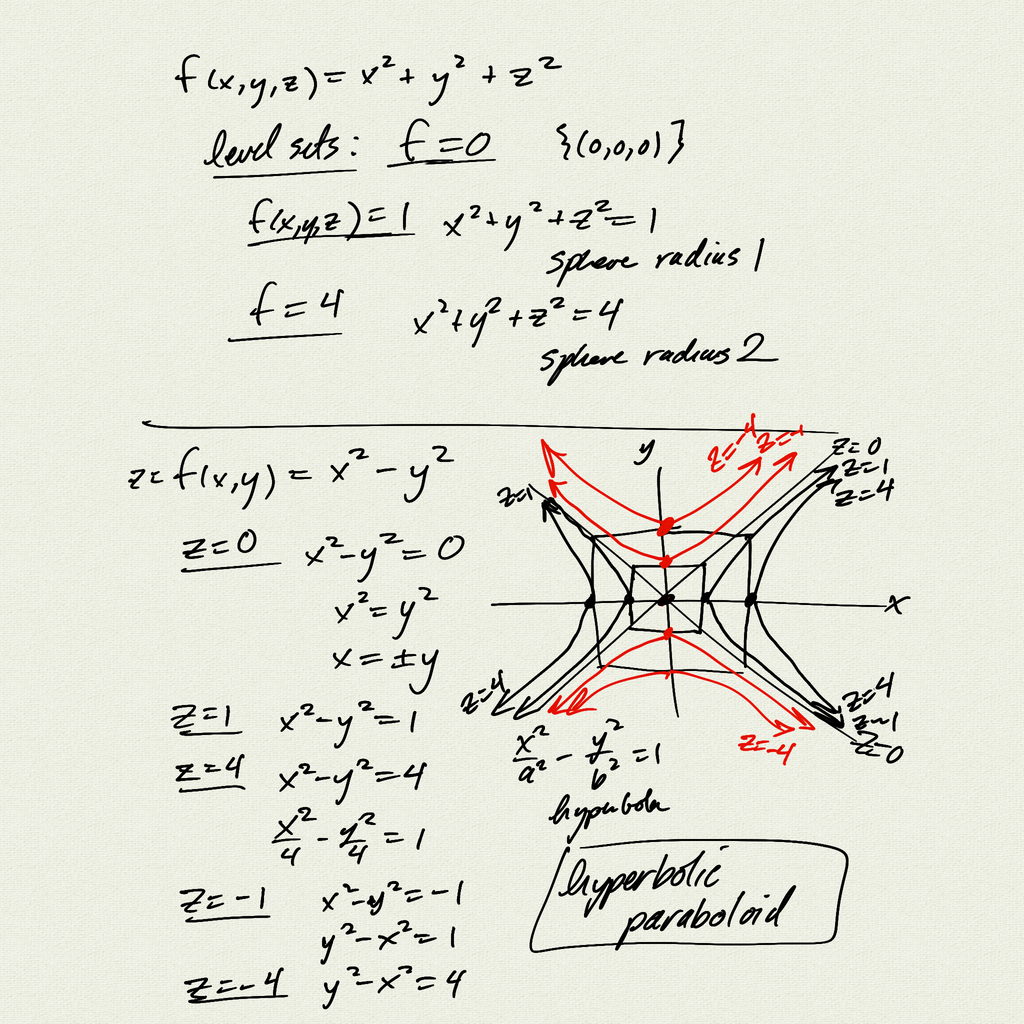 f(x,y,z) = x² + y² + z²
level sets: f = 0 {(0,0,0)}
f(x,y,z) = 1 x² + y² + z² = 1
sphere radius 1
f = 4 x² + y² + z² = 4
sphere radius 2
z = f(x,y) = x² - y²
z=0 x² - y² = 0
x² = y²
x = ±y
z=1 x² - y² = 1
z=4 x² - y² = 4
x²/4 - y²/4 = 1
z=-1 x² - y² = -1
y² - x² = 1
z=-4 y² - x² = 4
y
z=-4
z=-1
z=0
z=1
z=4
z=1
x
z=4
z=4
z=1
z=0
z=-4
x²/a² - y²/b² = 1
hyperbola
hyperbolic
paraboloid